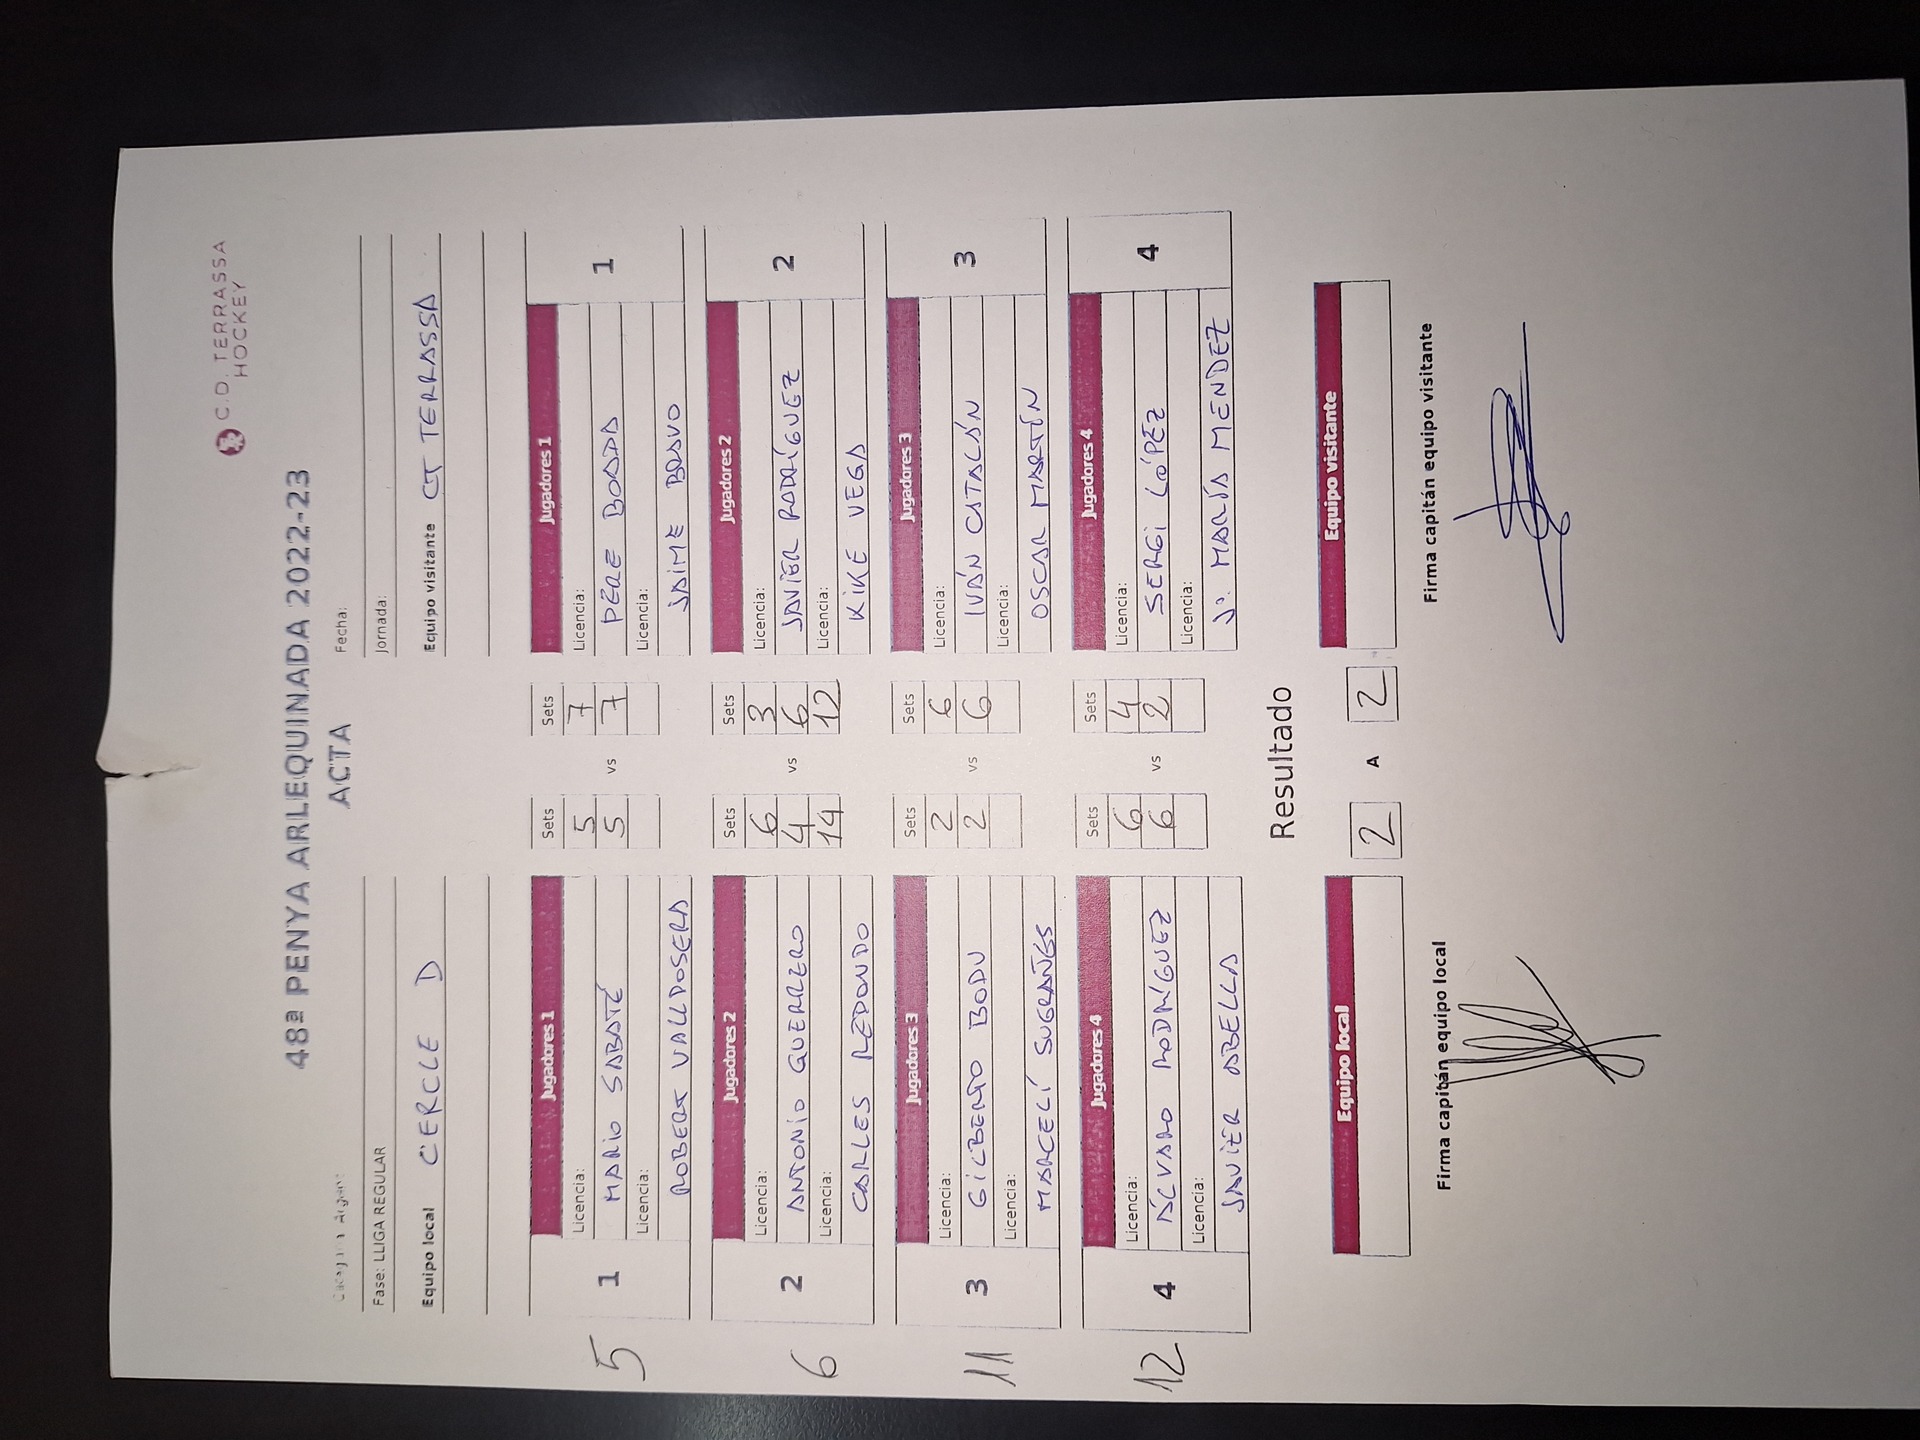 C.D. TERRASSA
HOCKEY
48ª PENYA ARLEQUINADA 2022-23
ACTA
Fecha:
Fase: LLIGA REGULAR
Jornada:
Equipo local CERCLE D
Equipo visitante CT TERRASSA
Jugadores 1 Sets Sets Jugadores 1
Licencia: 5 7 Licencia:
5 1 MARIO SABATÉ 5 vs 7 PERE BOADA 1
Licencia: Licencia:
ROBERT VALLDOSERA JAIME BRAVO
Jugadores 2 Sets Sets Jugadores 2
Licencia: 6 3 Licencia:
6 2 ANTONIO GUERRERO 4 vs 6 JAVIER RODRÍGUEZ 2
Licencia: 14 12 Licencia:
CARLES REDONDO KIKE VEGA
Jugadores 3 Sets Sets Jugadores 3
Licencia: 2 6 Licencia:
11 3 GILBERTO BODU 2 vs 6 IVÁN CATALÁN 3
Licencia: Licencia:
MARCELÍ SUGRAÑES OSCAR MARTÍN
Jugadores 4 Sets Sets Jugadores 4
Licencia: 6 4 Licencia:
12 4 ÁLVARO RODRÍGUEZ 6 vs 2 SERGI LÓPEZ 4
Licencia: Licencia:
JAVIER ABELLA Jº. MARÍA MENDEZ
Resultado
Equipo local Equipo visitante
2 A 2
Firma capitán equipo local Firma capitán equipo visitante